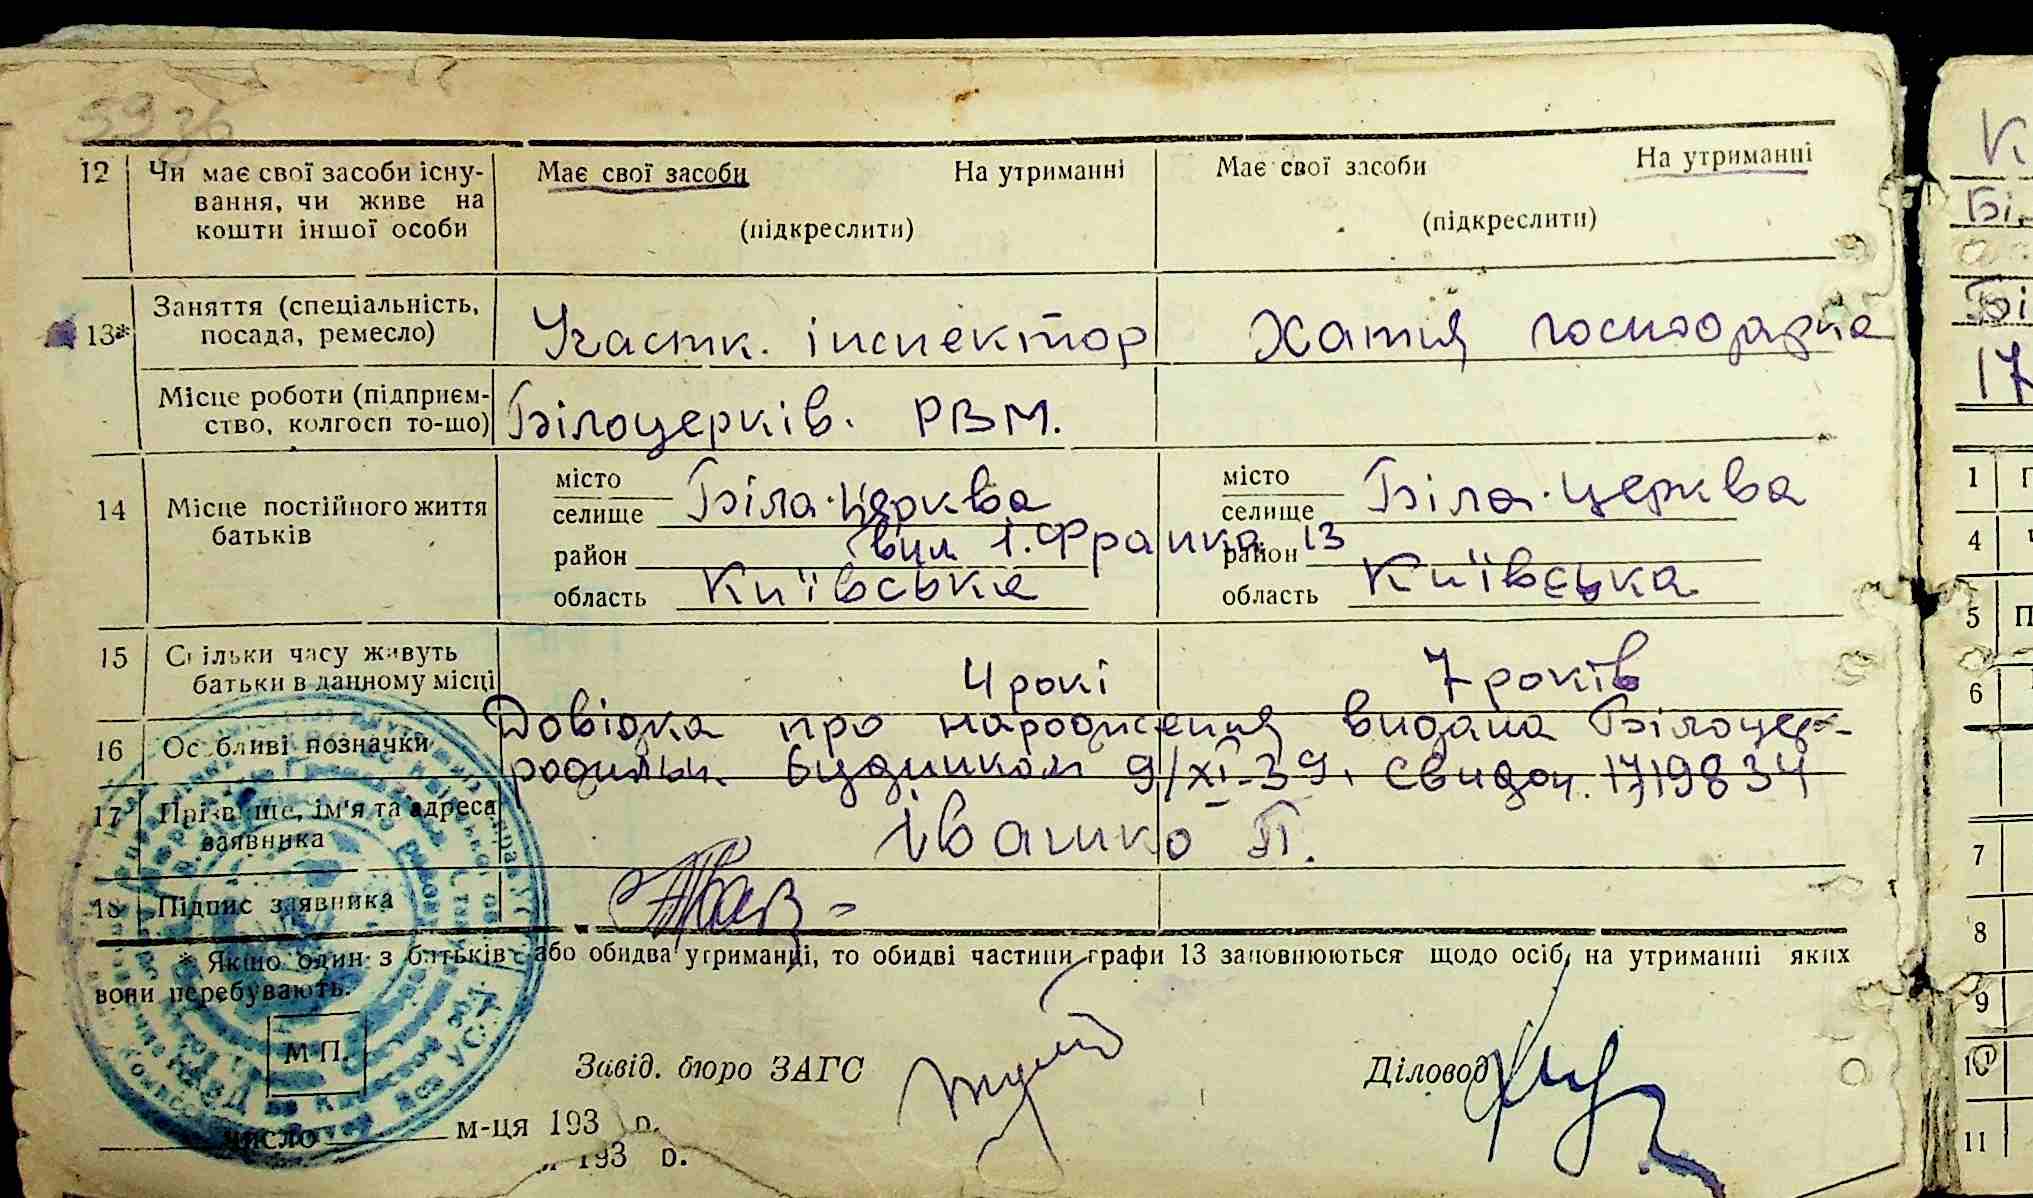 5926
12 Чи має свої засоби існу-
вання, чи живе на
кошти іншої особи
Має свої засоби На утриманні
(підкреслити)
Має свої засоби На утриманні
(підкреслити)
13* Заняття (спеціальність,
посада, ремесло)
Участк. інспектор
Хатня господарка
Місце роботи (підприєм-
ство, колгосп то-що)
Білоцерків. РВМ.
14 Місце постійного життя
батьків
місто
селище Біла-Церква
район вул І.Франка 13
область Київська
місто
селище Біла-Церква
район
область Київська
15 Скільки часу живуть
батьки в данному місці
4 рокі
7 років
16 Особливі позначки
Довідка про народження видана Білоцер-
родильн. будинком 9/XI-39. Свидоч. 1719834
17 Прізвище, ім'я та адреса
заявника
Івашко П.
18 Підпис заявника
* Якщо один з батьків або обидва утриманці, то обидві частини графи 13 заповнюються щодо осіб, на утриманні яких
вони перебувають.
М П.
Завід. бюро ЗАГС
Діловод
число м-ця 193 р.
193 р.
К
Бі
Бі
17
1 П
4
5 П
6
7
8
9
10
11